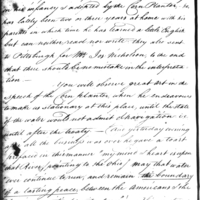 infancy is adopted by the Corn Planter, &
has lately been two or three years at home with his
parents in which time he has learned a little English
but can neither read nor write, they also sent
to Pittsburgh for Mr Jos Nicholson, to the end
that there should be no mistake in the interpreta-
tion —
You will observe great art in the
speech of the Corn Planter, when he endeavours
to make us stationary at this place, until the state
of the water would not admit of navigation
until after the treaty — One yesterday evening
the
over he gave a toast
expressed in the manner
that river (pointing to the Ohio) may that water
ever continue to run, and remain the boundary
of a lasting peace, between the Americans & the